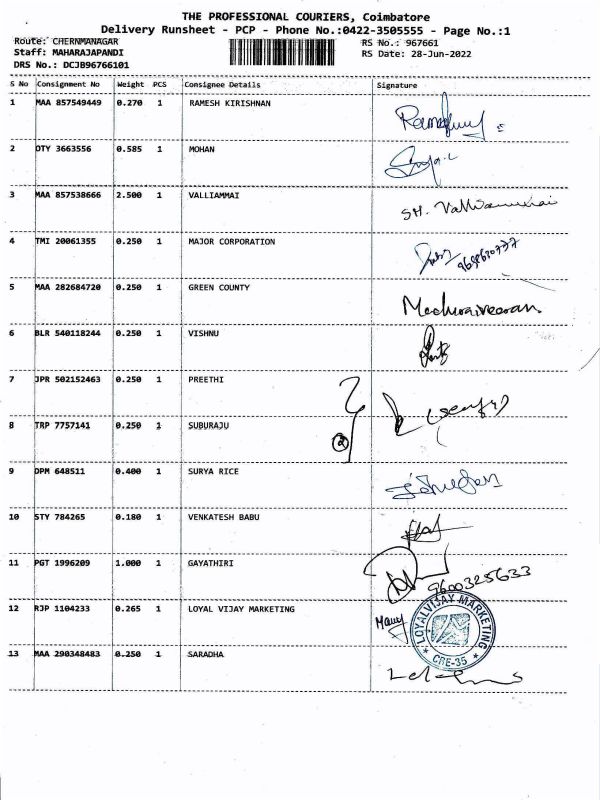 THE PROFESSIONAL COURIERS, Coimbatore
Delivery Runsheet - PCP - Phone No.:0422-3505555 - Page No.:1
Route: CHERNMANAGAR RS No.: 967661
Staff: MAHARAJAPANDI RS Date: 28-Jun-2022
DRS No.: DCJB96766101
S No Consignment No Weight PCS Consignee Details Signature
1 MAA 857549449 0.270 1 RAMESH KIRISHNAN
2 OTY 3663556 0.585 1 MOHAN
3 MAA 857538666 2.500 1 VALLIAMMAI
4 TMI 20061355 0.250 1 MAJOR CORPORATION
5 MAA 282684720 0.250 1 GREEN COUNTY
6 BLR 540118244 0.250 1 VISHNU
7 JPR 502152463 0.250 1 PREETHI
8 TRP 7757141 0.250 1 SUBURAJU
2
9 DPM 648511 0.400 1 SURYA RICE
10 STY 784265 0.180 1 VENKATESH BABU
11 PGT 1996209 1.000 1 GAYATHIRI
9600325633
12 RJP 1104233 0.265 1 LOYAL VIJAY MARKETING
LOYALVIJAY MARKETING
CBE-35
13 MAA 290348483 0.250 1 SARADHA